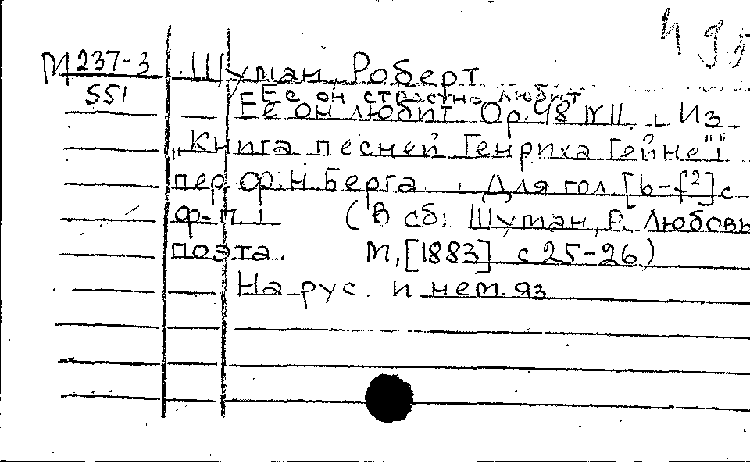 495
М 237-3 Шуман, Роберт
551 Ее он страстно любит
Ее он любит Ор. 48 N 11. Из
"Книга песней Генриха Гейне"
пер. Ф.Н. Берга. Для гол. [b-f²] с
ф-п. (В сб: Шуман, Р. Любовь
поэта. М, [1883] с 25-26)
На рус. и нем. яз